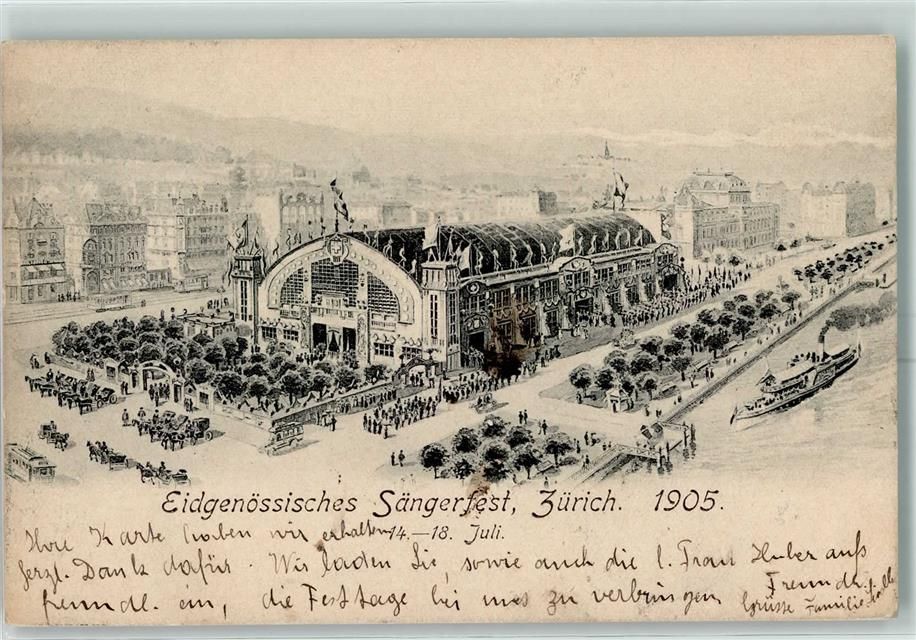 Eidgenössisches Sängerfest, Zürich. 1905.
14.–18. Juli.
Ihre Karte haben wir erhalten
herzl. Dank dafür. Wir laden Sie, sowie auch die l. Frau Huber aufs
freundl. ein, die Festtage bei uns zu verbringen
Freundl.
Grüsse Familie